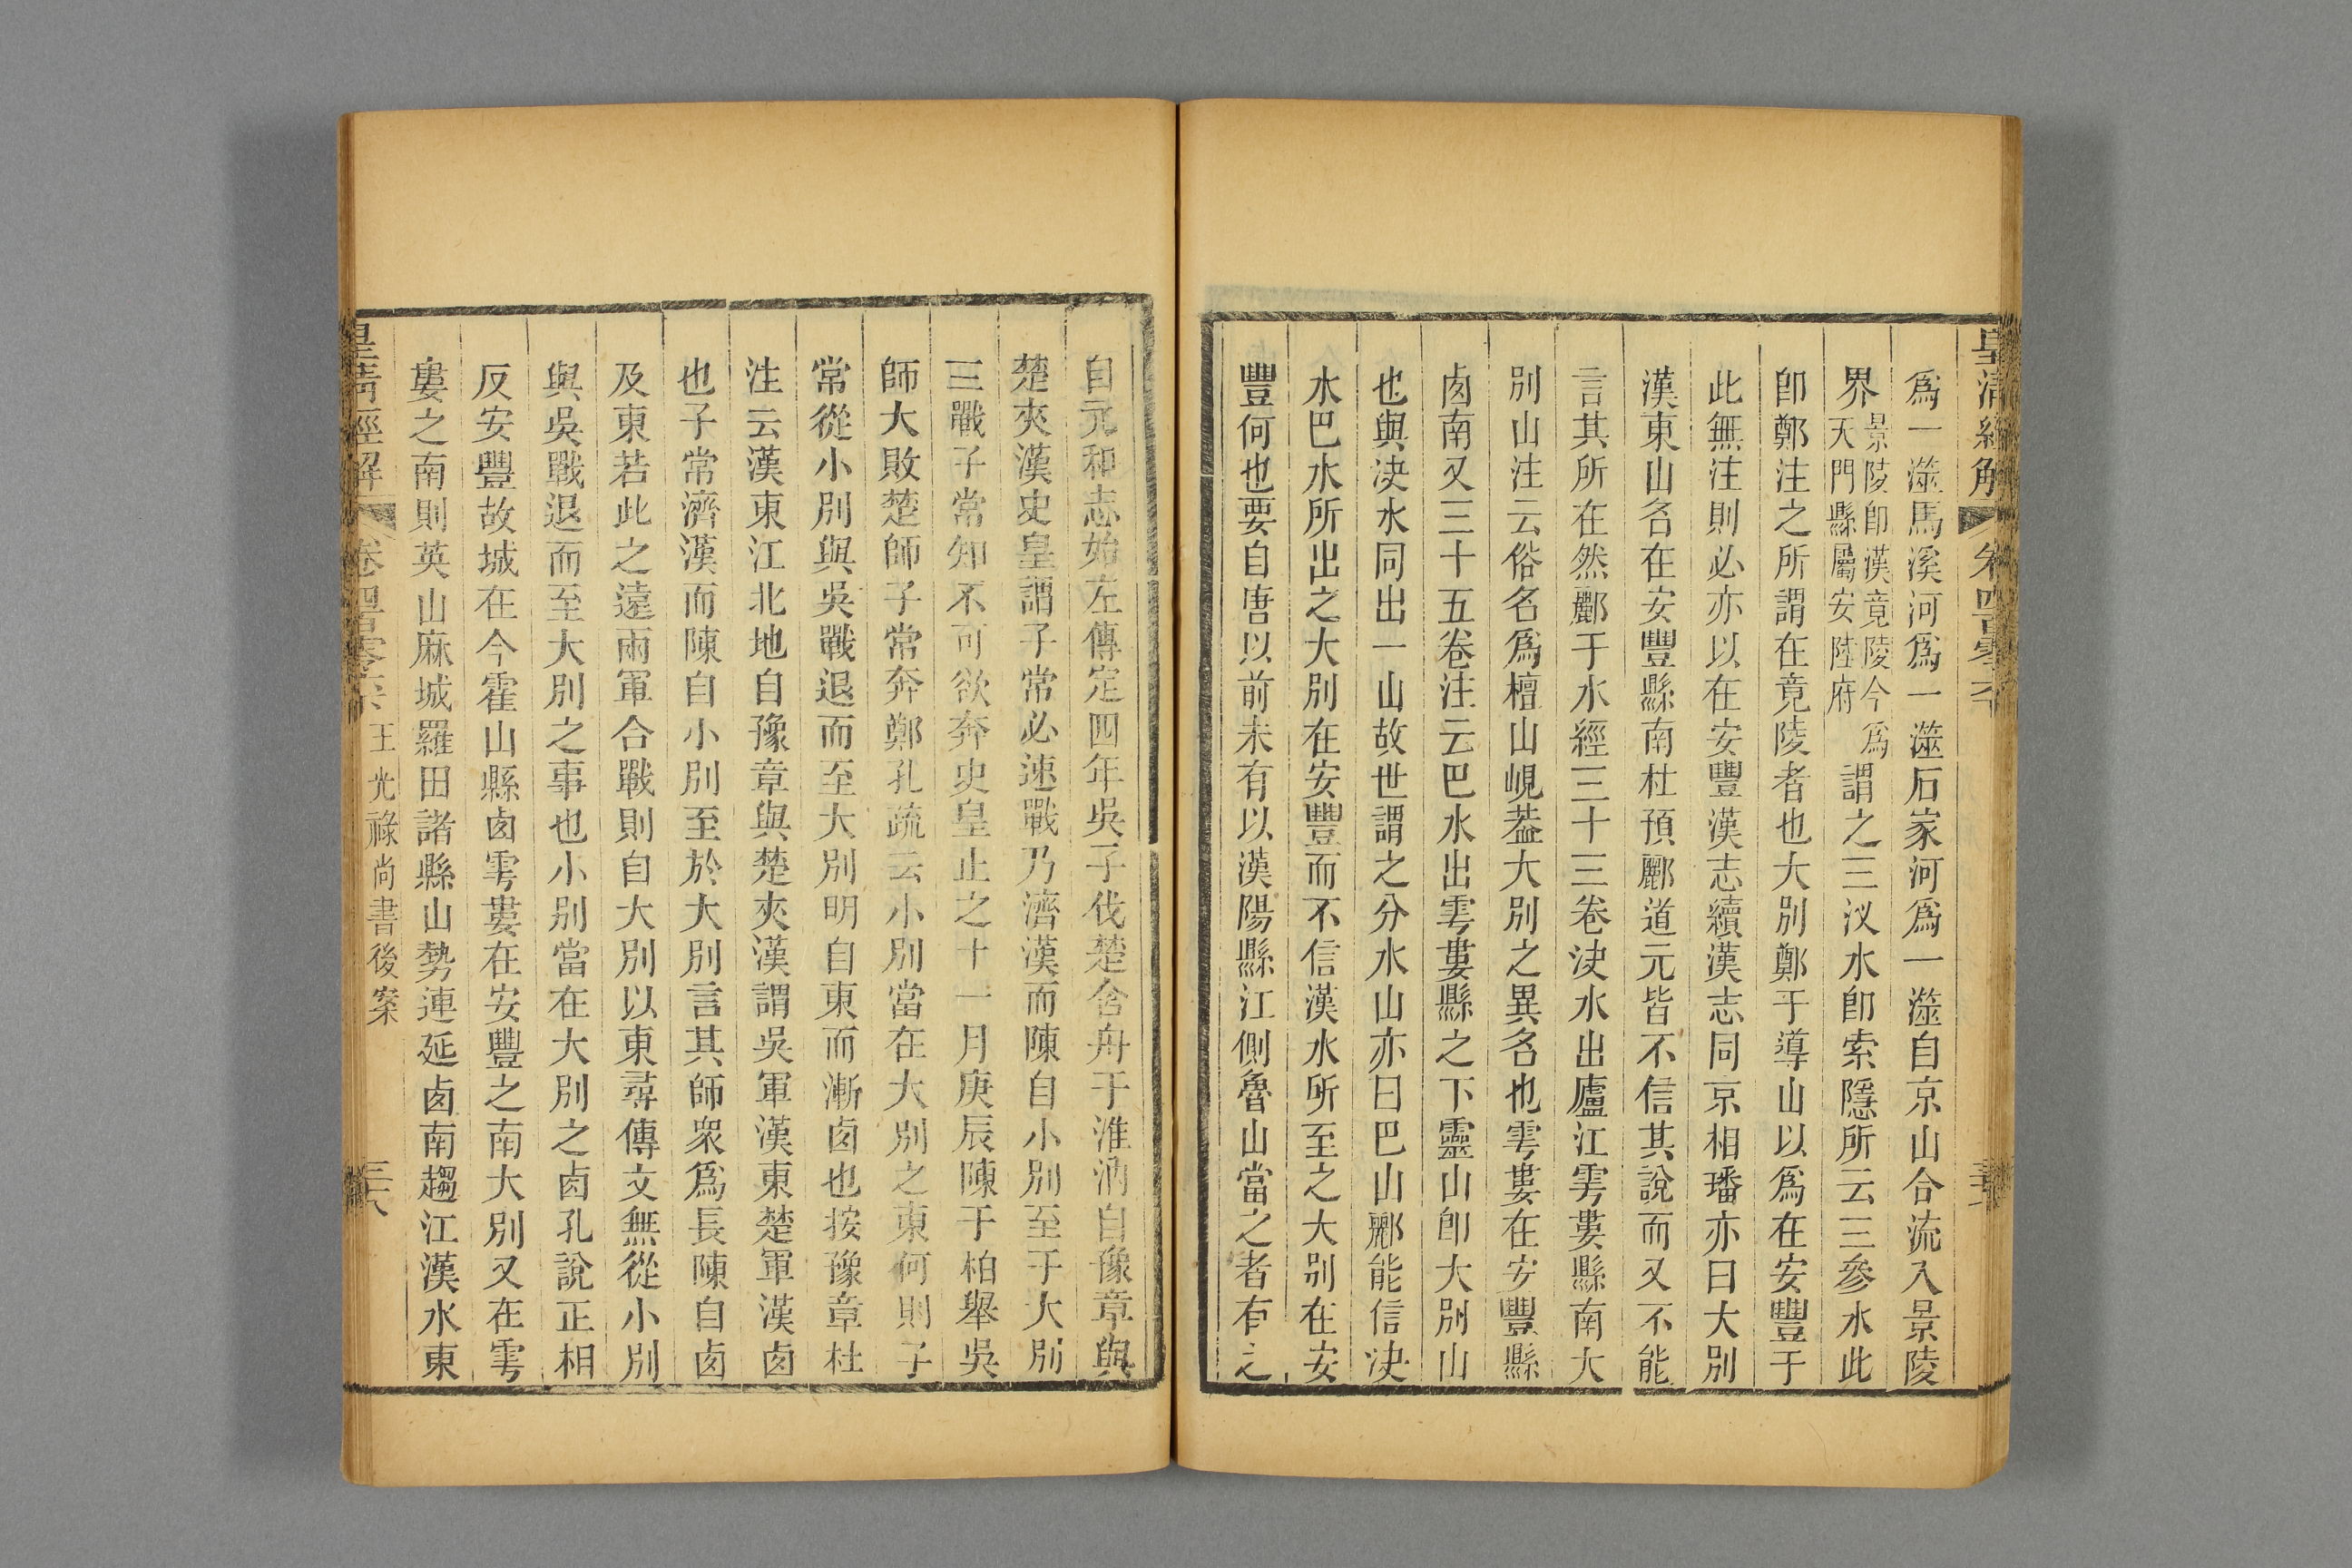 皇清經解 卷四百零六
爲一澨馬溪河爲一澨石家河爲一澨自京山合流入景陵
界景陵卽漢竟陵今爲天門縣屬安陸府謂之三汊水卽索隱所云三參水此
卽鄭注之所謂在竟陵者也大別鄭于導山以爲在安豐于
此無注則必亦以在安豐漢志續漢志同京相璠亦曰大別
漢東山名在安豐縣南杜預酈道元皆不信其說而又不能
言其所在然酈于水經三十三卷決水出廬江雩婁縣南大
別山注云俗名爲檀山峴葢大別之異名也雩婁在安豐縣
卤南又三十五卷注云巴水出雩婁縣之下靈山卽大別山
也與決水同出一山故世謂之分水山亦曰巴山酈能信決
水巴水所出之大別在安豐而不信漢水所至之大別在安
豐何也要自唐以前未有以漢陽縣江側魯山當之者有之
自元和志始左傳定四年吳子伐楚舍舟于淮汭自豫章與
楚夾漢史皇謂子常必速戰乃濟漢而陳自小別至于大別
三戰子常知不可欲奔史皇止之十一月庚辰陳于柏舉吳
師大敗楚師子常奔鄭孔疏云小別當在大別之東何則子
常從小別與吳戰退而至大別明自東而漸卤也按豫章杜
注云漢東江北地自豫章與楚夾漢謂吳軍漢東楚軍漢卤
也子常濟漢而陳自小別至於大別言其師衆爲長陳自卤
及東若此之遠兩軍合戰則自大別以東尋傳文無從小別
與吳戰退而至大別之事也小別當在大別之卤孔說正相
反安豐故城在今霍山縣卤雩婁在安豐之南大別又在雩
婁之南則英山麻城羅田諸縣山勢連延卤南趨江漢水東
皇清經解 卷四百零六 王光祿尚書後案